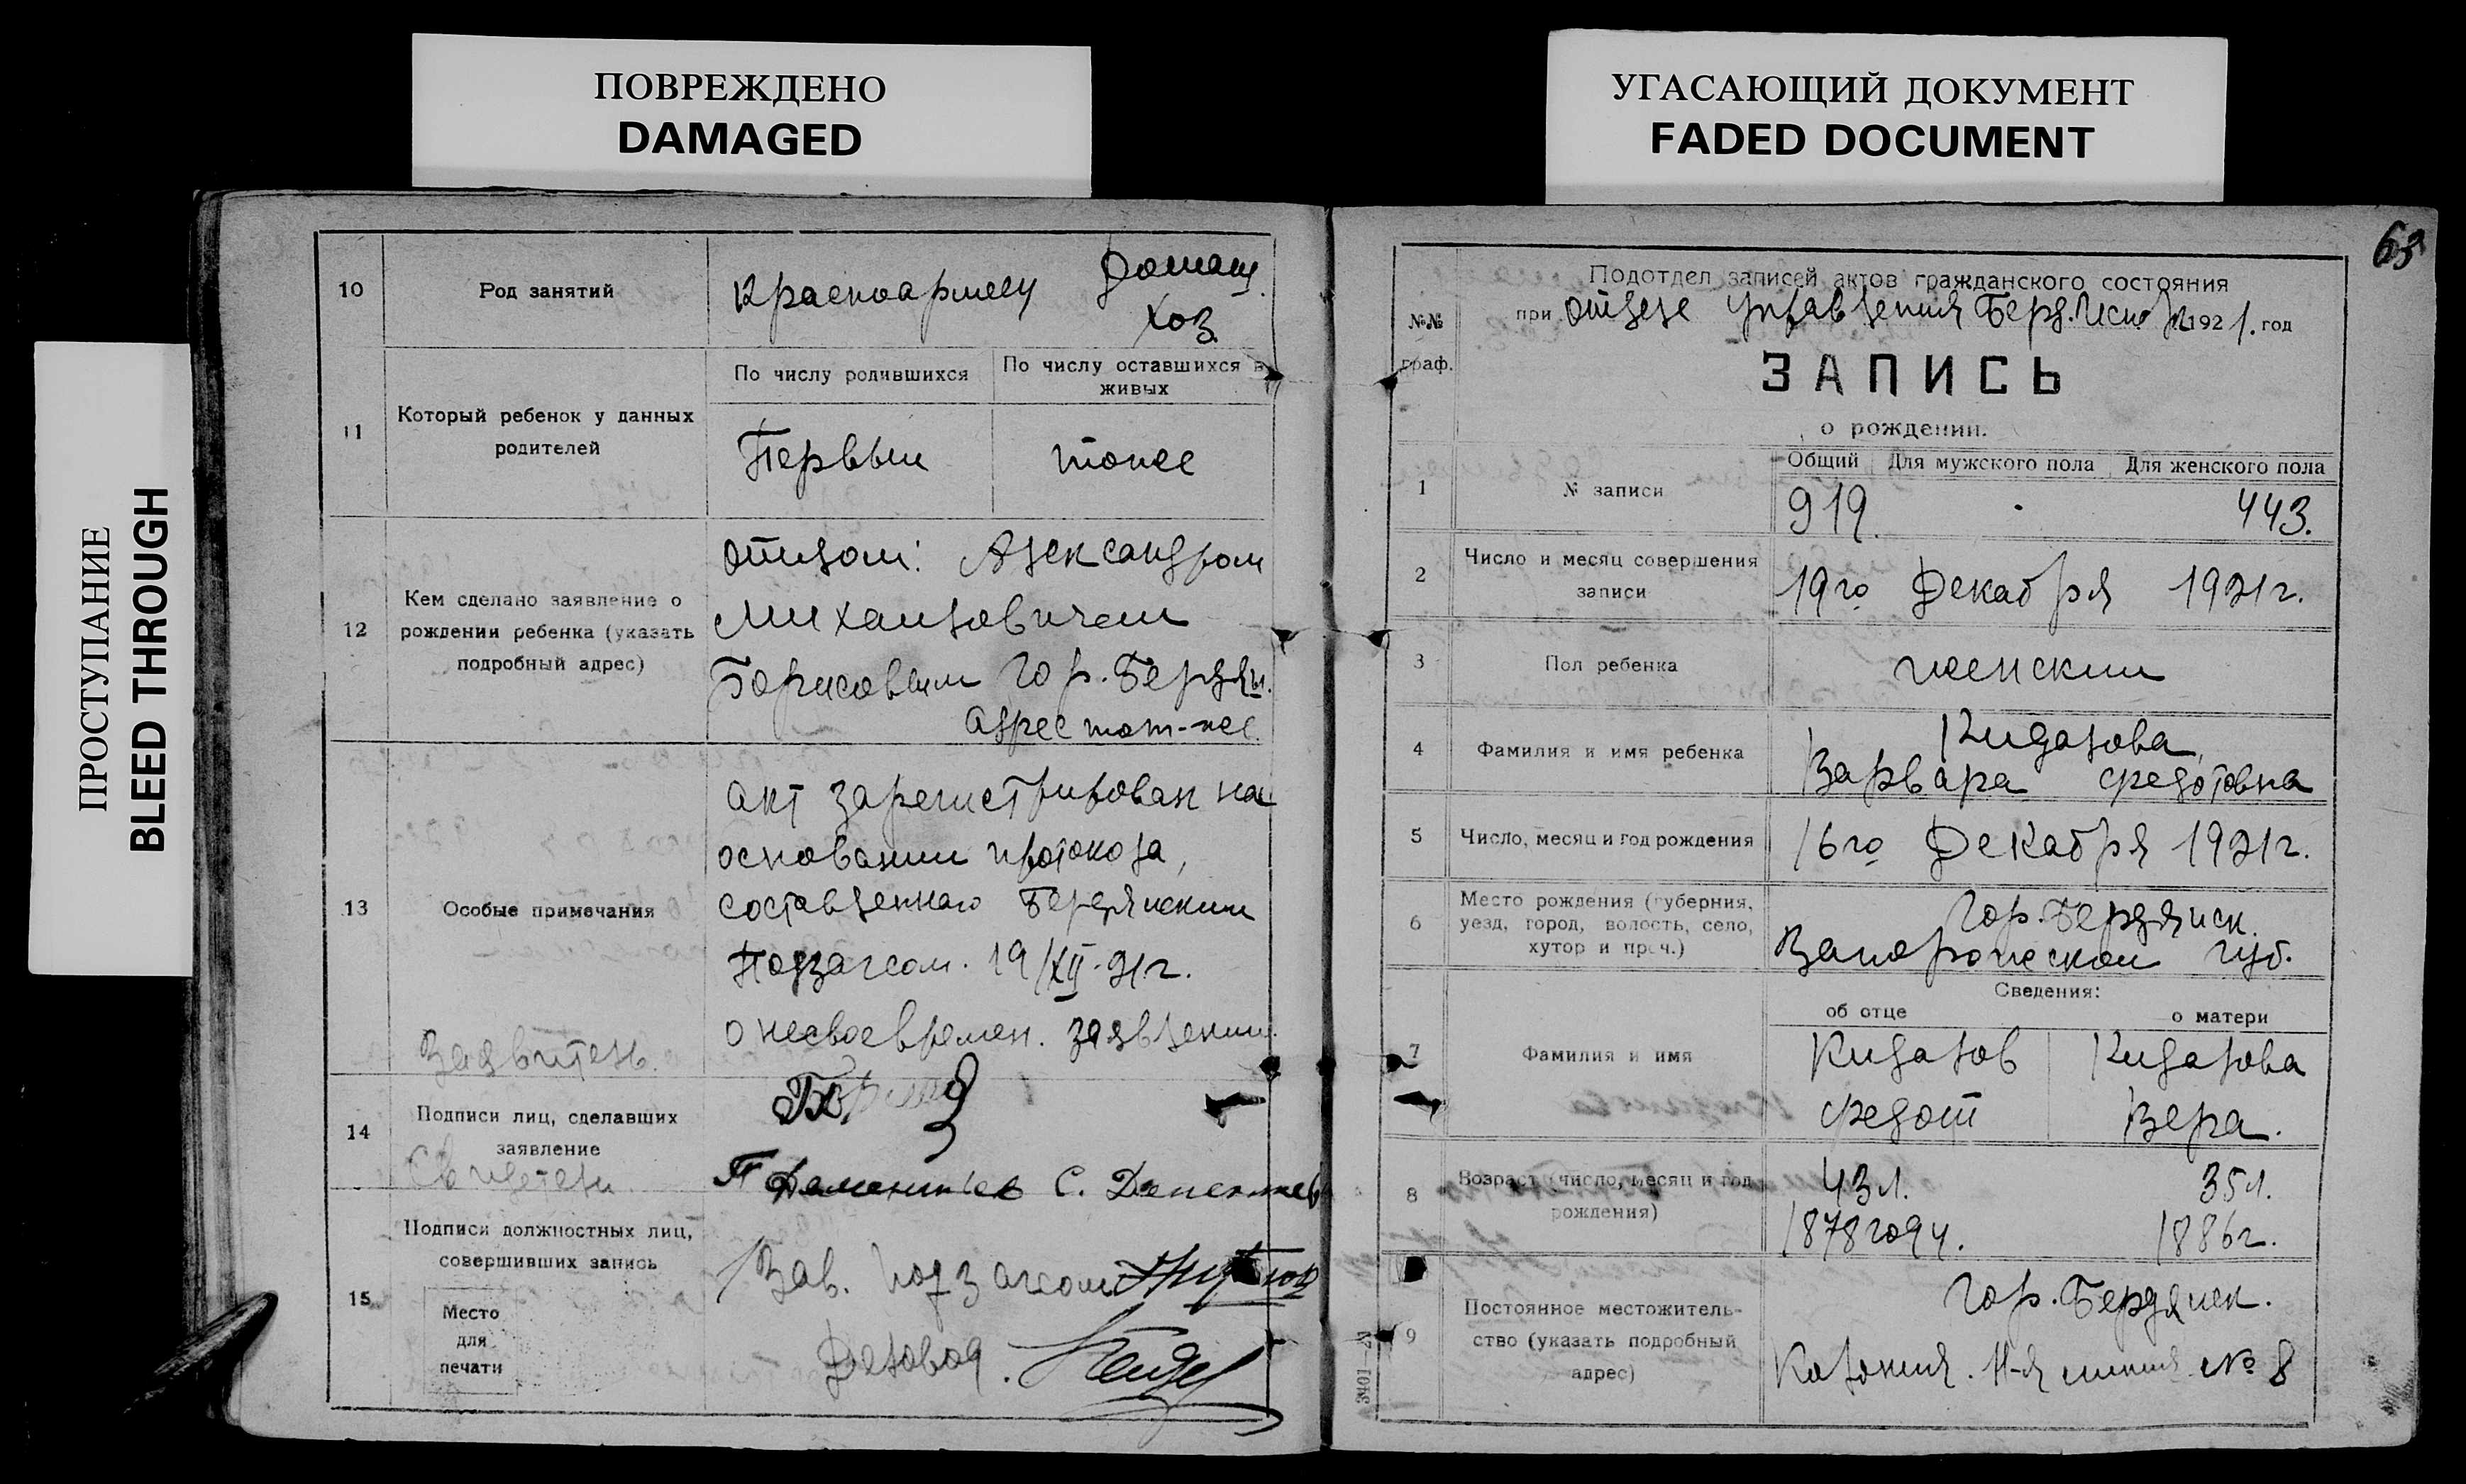 ПОВРЕЖДЕНО
DAMAGED
УГАСАЮЩИЙ ДОКУМЕНТ
FADED DOCUMENT
ПРОСТУПАНИЕ
BLEED THROUGH
10 Род занятий Красноармеец Домаш.
хоз.
11 Который ребенок у данных родителей
По числу родившихся По числу оставшихся в живых
Первый тоже
12 Кем сделано заявление о
рождении ребенка (указать
подробный адрес)
отцом: Александром
Михайловичем
Борисовым гор. Бердян.
Адрес тот-же.
13 Особые примечания
акт зарегистрирован на
основании протокола,
составленнаго Бердянским
Подзагсом. 19/XII-21г.
о несвоевремен. заявлении.
Заявитель.
14 Подписи лиц, сделавших
заявление
Свидетели
П Дементьев С. Дементьев
15 Подписи должностных лиц,
совершивших запись
Зав. подзагсом
Место
для
печати
Деловод.
63
Подотдел записей актов гражданского состояния
№№ при отделе управления Берд. 1921. год
граф.
ЗАПИСЬ
о рождении.
Общий Для мужского пола Для женского пола
1 № записи 919. 443.
2 Число и месяц совершения
записи
19го Декабря 1921г.
3 Пол ребенка женский
4 Фамилия и имя ребенка
Кидалова,
Варвара Федотовна
5 Число, месяц и год рождения 16го Декабря 1921г.
6 Место рождения (губерния,
уезд, город, волость, село,
хутор и проч.)
Гор. Бердянск.
Запорожской губ.
Сведения:
об отце о матери
7 Фамилия и имя
Кидалов Кидалова
Федот Вера.
8 Возраст (число, месяц и год
рождения)
43л. 35л.
1878году. 1886г.
9 Постоянное местожитель-
ство (указать подробный
адрес)
Гор. Бердянск.
Колония. 11-я линия № 8
3401—21